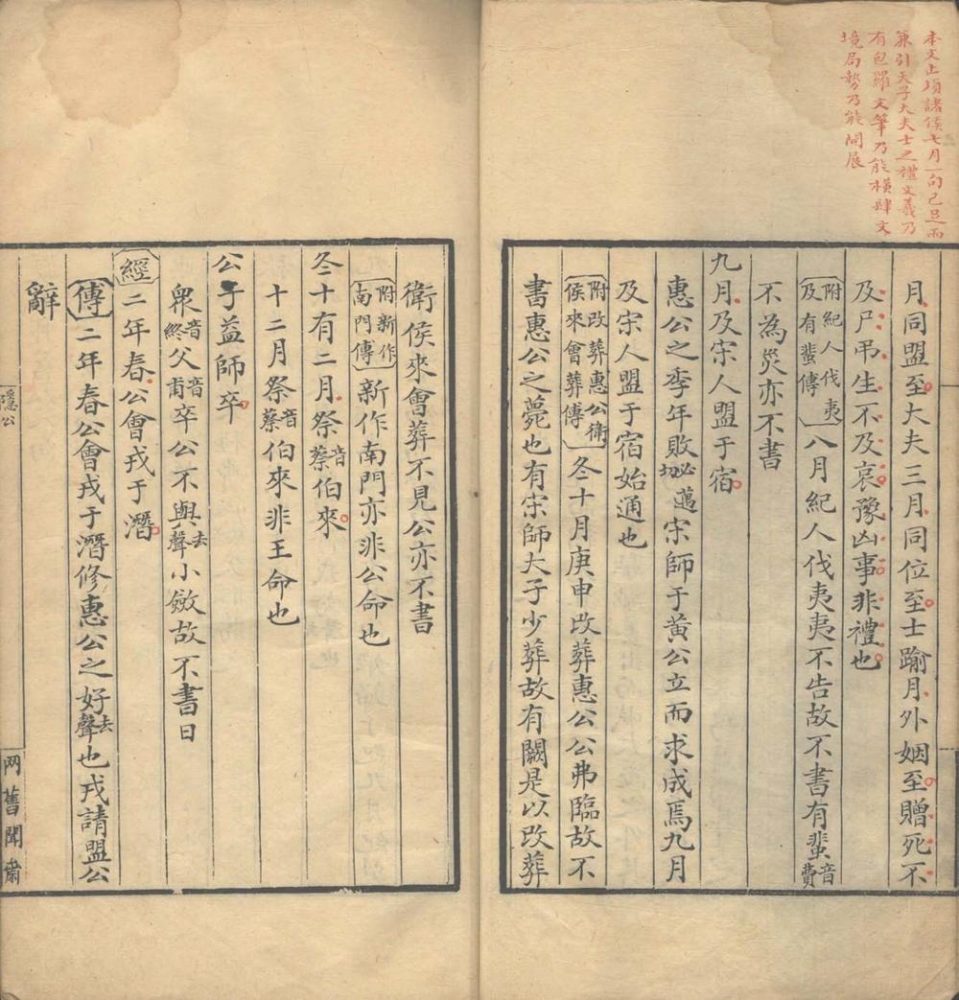 本文止須諸侯七月一句已足而
兼引天子大夫士之禮文義乃
有包羅文筆乃能橫肆文
境局勢乃能開展
月同盟至大夫三月同位至士踰月外姻至贈死不
及尸弔生不及哀豫凶事非禮也
附紀人伐夷
及有蜚傳
八月紀人伐夷夷不告故不書有蜚音
費
不為災亦不書
九月及宋人盟于宿
惠公之季年敗必
邁
切
宋師于黃公立而求成焉九月
及宋人盟于宿始通也
附改葬惠公衛
侯來會葬傳
冬十月庚申改葬惠公公弗臨故不
書惠公之薨也有宋師大子少葬故有闕是以改葬
衛侯來會葬不見公亦不書
附新作
南門傳
新作南門亦非公命也
冬十有二月祭音
蔡
伯來
十二月祭音
蔡
伯來非王命也
公子益師卒
衆音
終
父音
甫
卒公不與去
聲
小斂故不書日
經 二年春公會戎于潛
傳 二年春公會戎于潛修惠公之好去
聲
也戎請盟公
辭
隱公
网舊聞齋